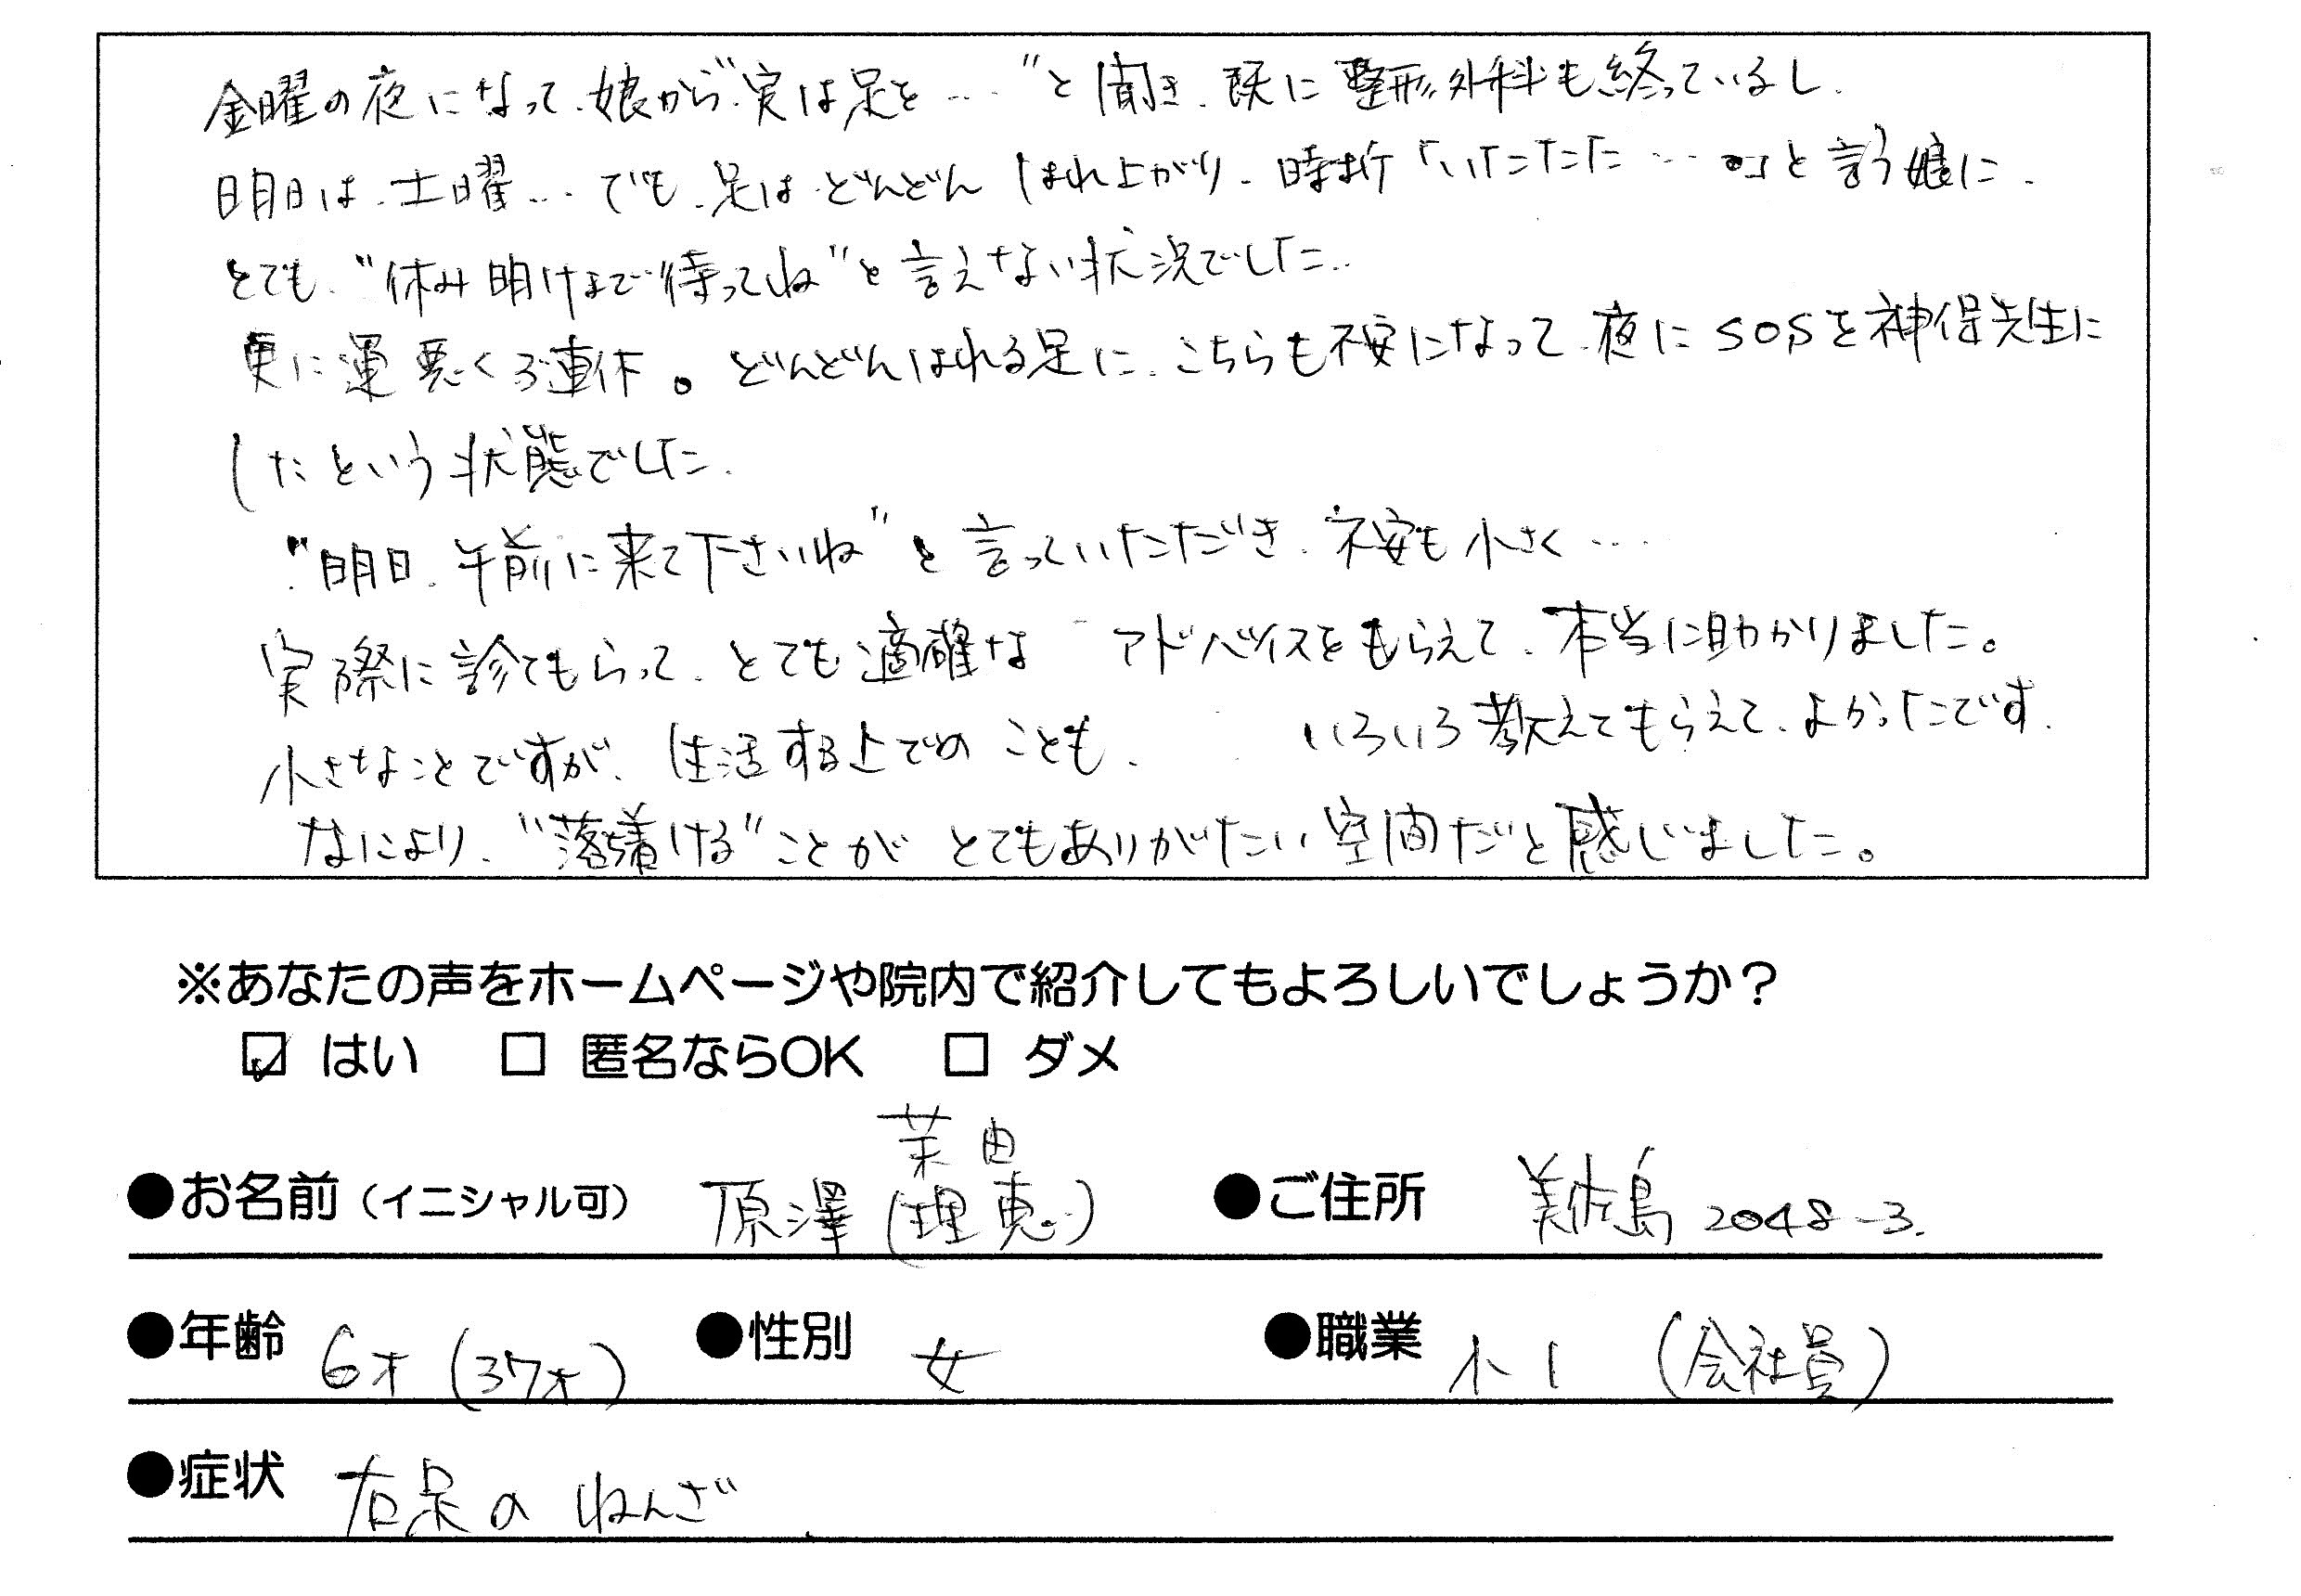 金曜の夜になって、娘から“実は足を…”と聞き、既に整形外科も終っているし、
明日は、土曜…でも、足はどんどんはれ上がり、時折「いたたた…。」と言う娘に、
とても、“休み明けまで待ってね”と言えない状況でした。
更に運悪く3連休。どんどんはれる足に、こちらも不安になって、夜にSOSを神保先生に
したという状態でした。
“明日、午前に来て下さいね”と言っていただき、不安も小さく…
実際に診てもらって、とても適確な アドバイスをもらえて、本当に助かりました。
小さなことですが、生活する上でのことも、 いろいろ教えてもらえて、よかったです。
なにより、“落ち着ける”ことがとてもありがたい空間だと感じました。
※あなたの声をホームページや院内で紹介してもよろしいでしょうか？
☑ はい □ 匿名ならOK □ ダメ
●お名前（イニシャル可） 原澤 茉由（理恵） ●ご住所 美佐島 2048-3.
●年齢 6才（37才） ●性別 女 ●職業 小1（会社員）
●症状 右足の ねんざ